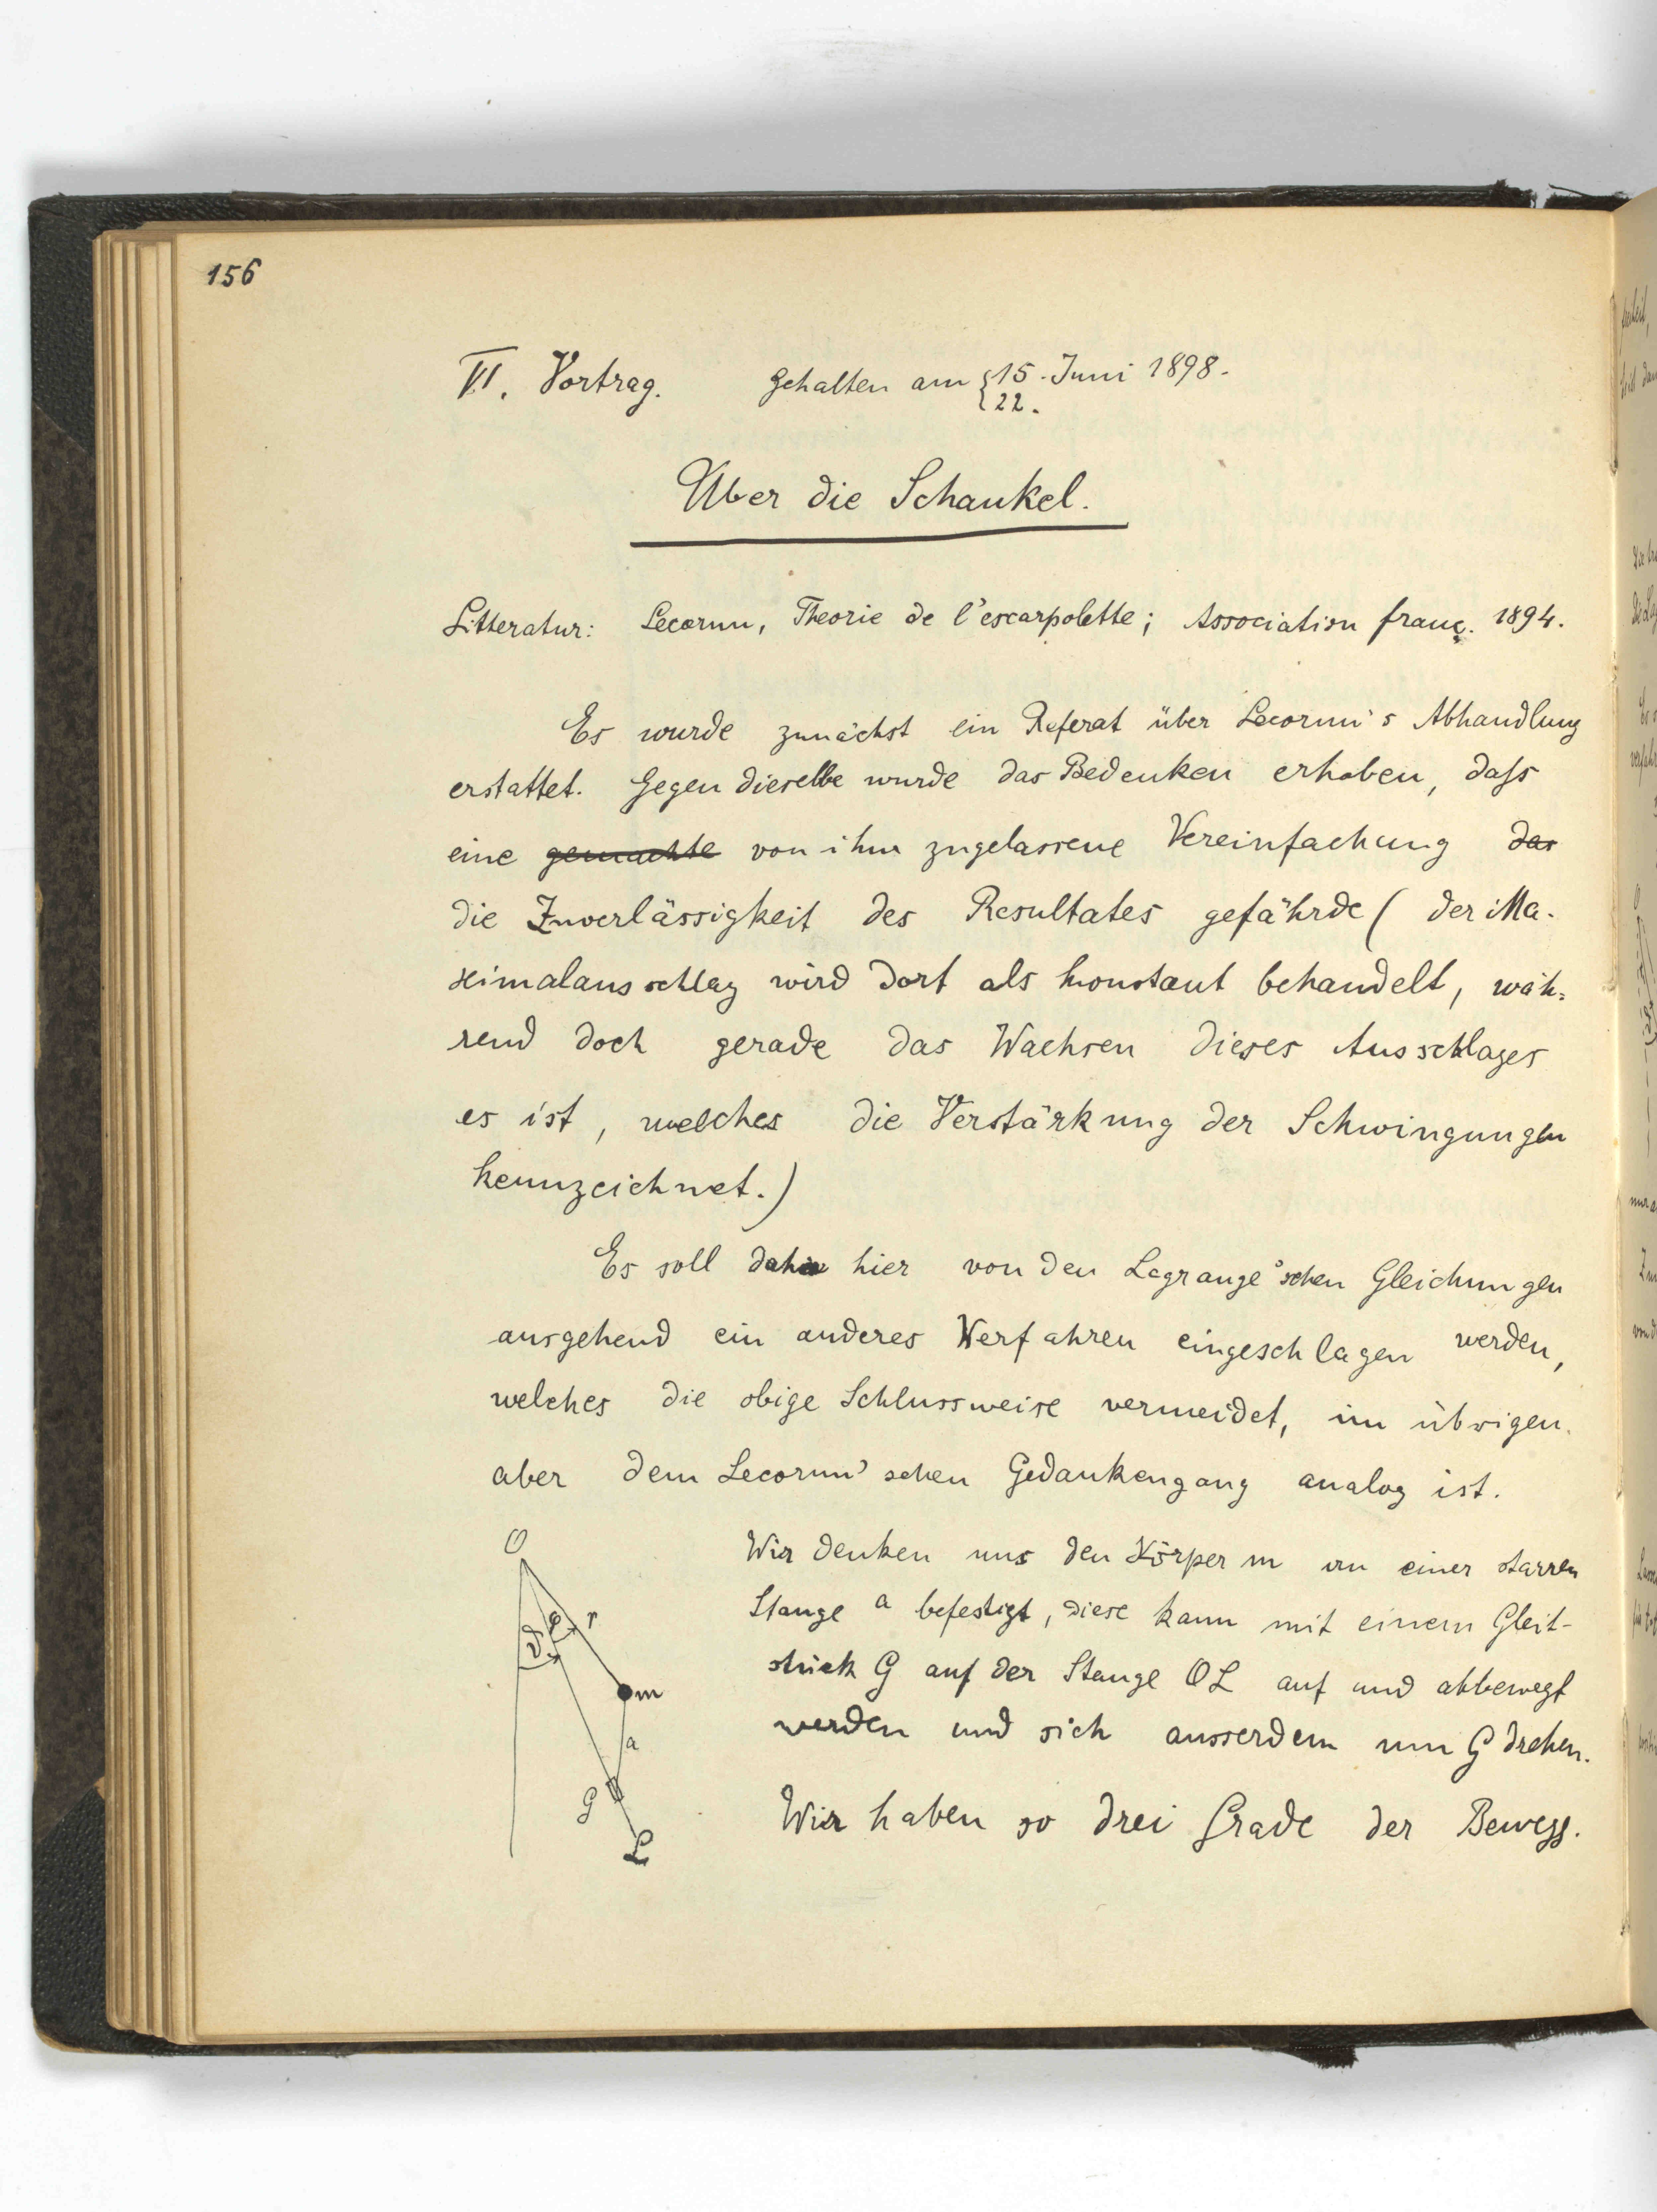 156
VI. Vortrag. gehalten am { 15. Juni 1898.
22.
Über die Schaukel.
Litteratur: Lecornu, Theorie de l'escarpolette; Association franç. 1894.
Es wurde zunächst ein Referat über Lecornu's Abhandlung
erstattet. Gegen dieselbe wurde das Bedenken erhoben, dass
eine gemachte von ihm zugelassene Vereinfachung das
die Zuverlässigkeit des Resultates gefährde ( der Ma-
ximalausschlag wird dort als konstant behandelt, wäh=
rend doch gerade das Wachsen dieses Ausschlages
es ist, welches die Verstärkung der Schwingungen
kennzeichnet.)
Es soll hier von den Lagrange'schen Gleichungen
ausgehend ein anderes Verfahren eingeschlagen werden,
welches die obige Schlussweise vermeidet, im übrigen
aber dem Lecornu'schen Gedankengang analog ist.
O
φ r
ϑ
m
a
G
L
Wir denken uns den Körper m an einer starren
Stange a befestigt, diese kann mit einem Gleit-
stück G auf der Stange OL auf und abbewegt
werden und sich ausserdem um G drehen.
Wir haben so drei Grade der Bewegg.